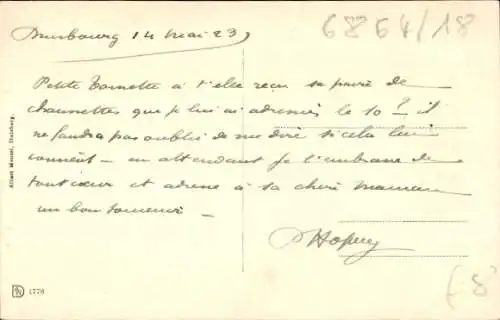 14 mai 23
6864/18
Petite Toinette a t'elle reçu sa paire de
chaussettes que je lui ai adressées le 10 ? il
ne faudra pas oublier de me dire si cela lui
convient – en attendant je t'embrasse de
tout cœur et adresse à ta chère maman
un bon souvenir –
1778